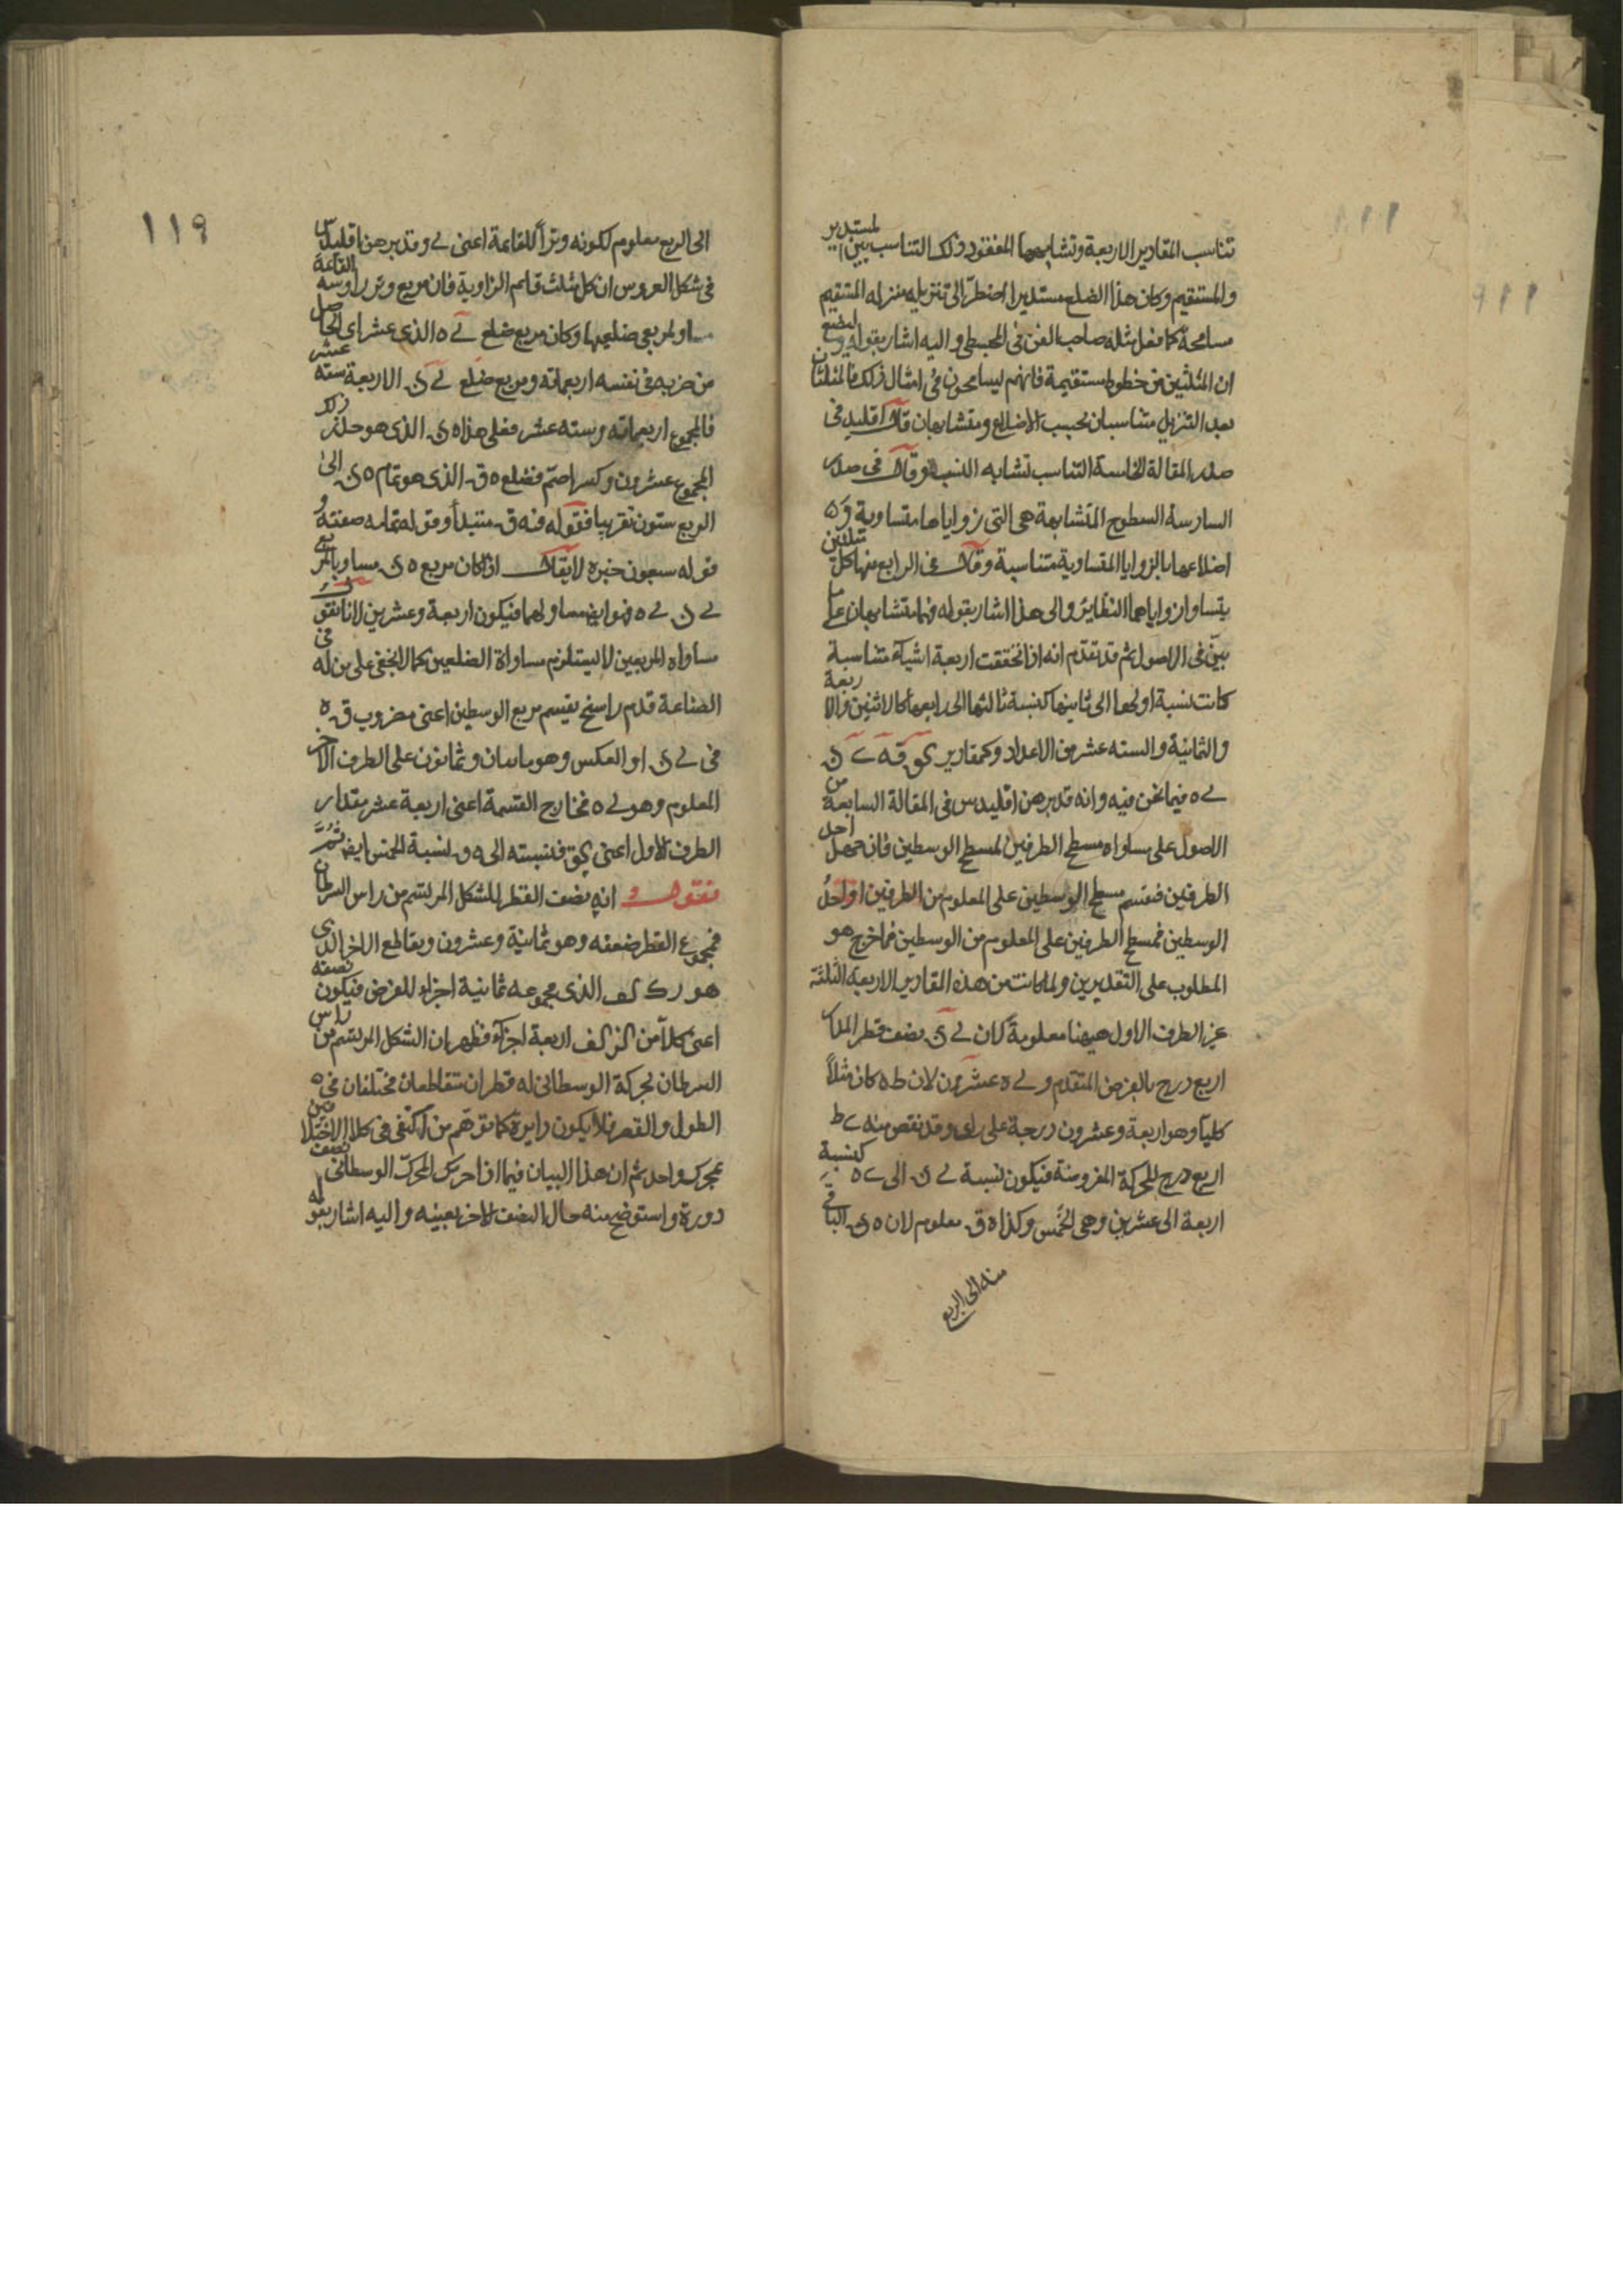 تناسب المقادير الاربعة وتشابهها المفقود ذلك التناسب بين المستدير
والمستقيم وكان هذا الضلع مستديرا اضطر الى تنزيله منزله المستقيم
مسامحة كما فعل مثله صاحب الفن فى المجسطى واليه اشار بقوله وليضع
ان المثلثين من خطوط مستقيمة فانهم ليسامحون فى امثال ذلك فالمثلثان
بعد التنزيل متناسبان بحسب الاضلاع ومتشابهان قال اقليد فى
صدر المقالة الخامسة التناسب تشابه النسب وقال فى صدر
السادسة السطوح المتشابهة هى التى زواياها متساوية و
اضلاعها بالزوايا المتساوية متناسبة وقال فى الرابع منها كل مثلثين
يتساوا زواياهما النظاير والى هذا اشار بقوله فهما متشابهان على ما
بين فى الاصول ثم قد تقدم انه اذا تحققت اربعة اشياء متناسبة
كانت نسبة اولها الى ثانيها كنسبة ثالثها الى رابعها كالاثنين والاربعة
والثمانية والسته عشر من الاعداد وكمقادير
فيما نحن فيه وانه قد برهن اقليدس فى المقالة السابعة من
الاصول على مساواه مسطح الطرفين لمسطح الوسطين فان جهل احد
الطرفين فنقسم مسطح الوسطين على المعلوم من الطرفين او احد
الوسطين فمسطح الطرفين على المعلوم من الوسطين فما خرج هو
المطلوب على التقديرين ولما كانت من هذه المقادير الاربعة الثلثة
غير الطرف الاول هيهنا معلومة كان نصف قطر المدار
اربع درج بالفرض المتقدم و عشرون لان ط ه كان مثلاً
كلياً وهو اربعة وعشرون درجة على راى وقد نقص منه
اربع درج للحركة المفروضة فيكون نسبة الى كنسبة
اربعة الى عشرين وهى الخمس وكذا ه ق معلوم لان الباقى
منه الى الربع
١١٩
الى الربع معلوم لكونه وتراً للقائمة اعنى وقد برهن اقليدس
فى شكل العروس ان كل مثلث قايم الزاوية فان مربع وتر زاويته القائمة
مساو لمربعى ضلعيها وكان مربع ضلع الذى عشر اى الحاصل
من ضربه فى نفسه اربعمائه ومربع ضلع الاربعة سته عشر
فالمجموع اربعمائه وسته عشر فعلى هذا الذى هو جذر ذلك
المجموع عشرون وكسر اصم فضلع ه ق الذى هو تمام الى
الربع ستون تقريبا فقوله فه ق مبتدأ وقوله تمامه صفته و
قوله سبعون خبره لا يقال اذا كان مربع مساويا لمربعى
فهو ايضا مساو لهما فيكون اربعة وعشرين لانا نقول
مساواه المربعين لا يستلزم مساواة الضلعين كما لا يخفى على من له فى
الصناعة قدم راسخ نقسم مربع الوسطين اعنى مضروب ق ه
فى او العكس وهو مايتان وثمانون على الطرف الاخر
المعلوم وهو فخارج القسمة اعنى اربعة عشر مقدار
الطرف الاول اعنى فنسبته الى ه ق نسبة الخمس ايضا ثم
نقول انه نصف القطر للشكل المرتسم من راس السرطان
فمجموع القطر ضعفه وهو ثمانية وعشرون ويقاطع الاخر الذى
هو الذى مجموعه ثمانية اجزاء للفرض فيكون نصفه
اعنى كلاً من اربعة اجزاء فظهر ان الشكل المرتسم من راس
السرطان بحركة الوسطانى له قطران متقاطعان مختلفان فى
الطول والقصر فلا يكون دايرة كما توهم من اكتفى فى كلا الاختلافين
بمحرك واحد ثم ان هذا البيان فيما اذا حرك المحرك الوسطانى نصف
دورة واستوضح منه حال النصف الاخر بعينه واليه اشار بقوله